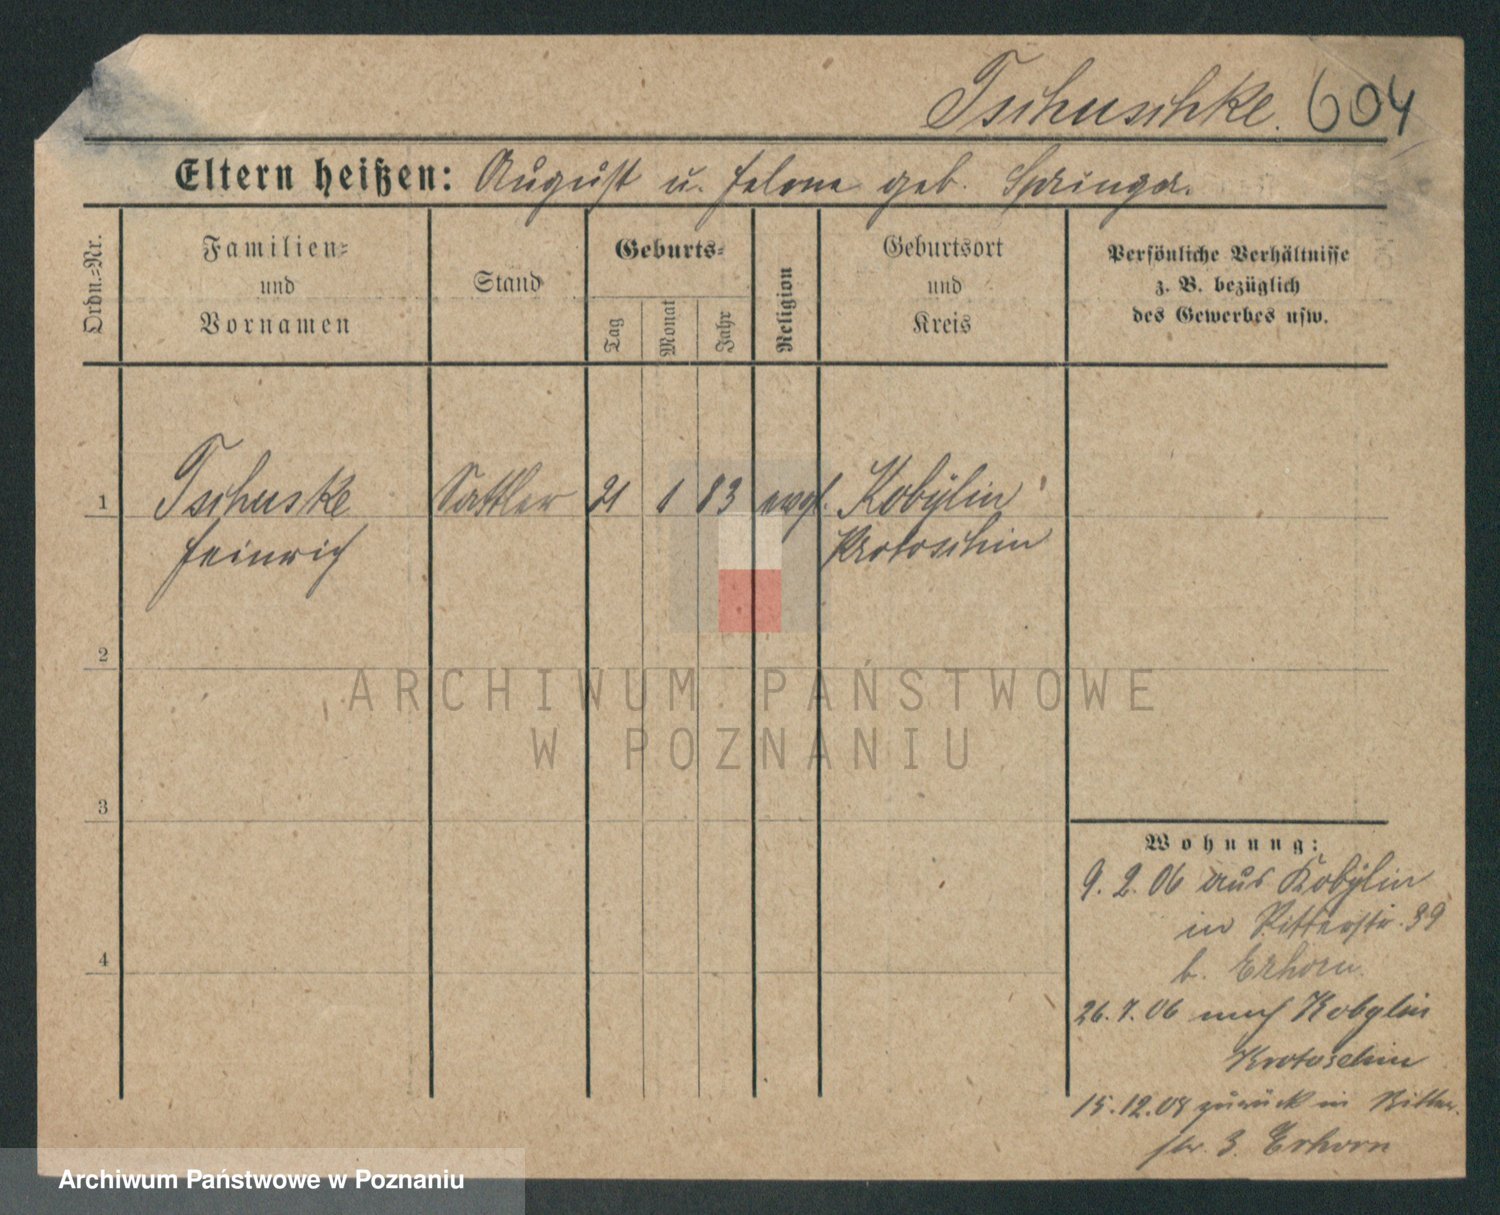 Tschuschke. 604
Eltern heißen: August u. Helene geb. Springer.
Ordn.-Nr.
Familien-
und
Vornamen
Stand
Geburts-
Tag
Monat
Jahr
Religion
Geburtsort
und
Kreis
Persönliche Verhältnisse
z. B. bezüglich
des Gewerbes usw.
1 Tschuske Sattler 21 1 83 evgl. Kobylin
Heinrich Krotoschin
2
3
4
Wohnung:
9. 2. 06 aus Kobylin
in Ritterstr. 39
b. Erhorn
26. 7. 06 nach Kobylin
Krotoschin
15. 12. 08 zurück in Ritter
str. 3. Erhorn
ARCHIWUM PAŃSTWOWE
W POZNANIU
Archiwum Państwowe w Poznaniu